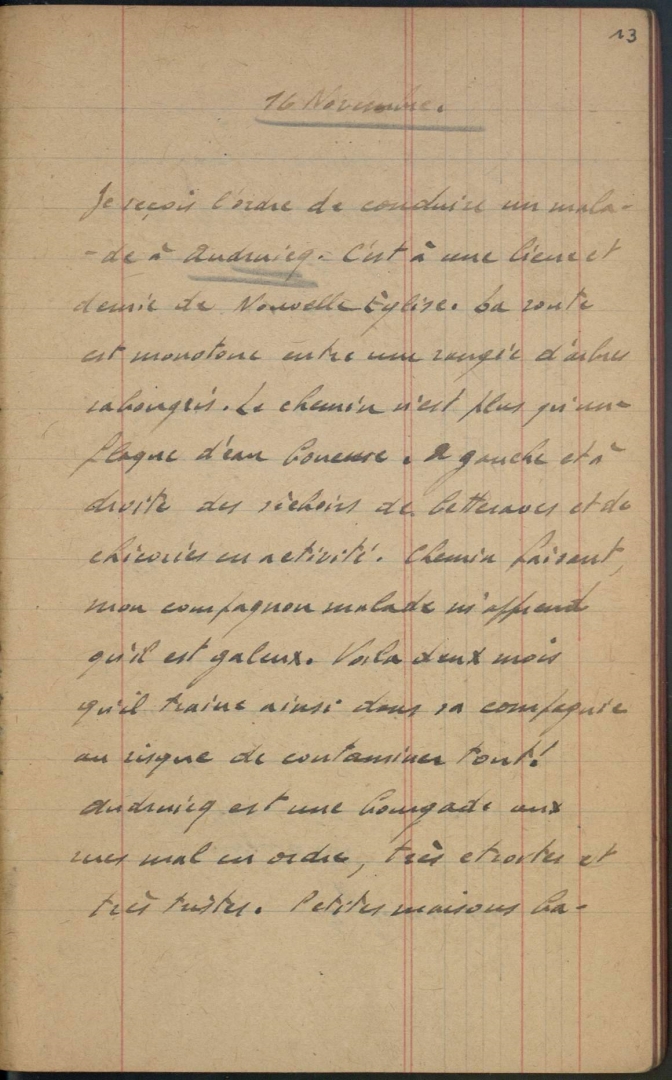 13
16 Novembre.
Je reçois l'ordre de conduire un mala-
-de à Audruicq. C'est à une lieue et
demie de Nouvelle Église. La route
est monotone entre une rangée d'arbres
rabougris. Le chemin n'est plus qu'une
flaque d'eau boueuse. A gauche et à
droite des séchoirs de betteraves et de
chicorées en activité. Chemin faisant,
mon compagnon malade m'apprend
qu'il est galeux. Voila deux mois
qu'il traine ainsi dans sa compagnie
au risque de contaminer tout!
Audruicq est une bourgade aux
rues mal en ordre, très etroites et
très tristes. Petites maisons ba-